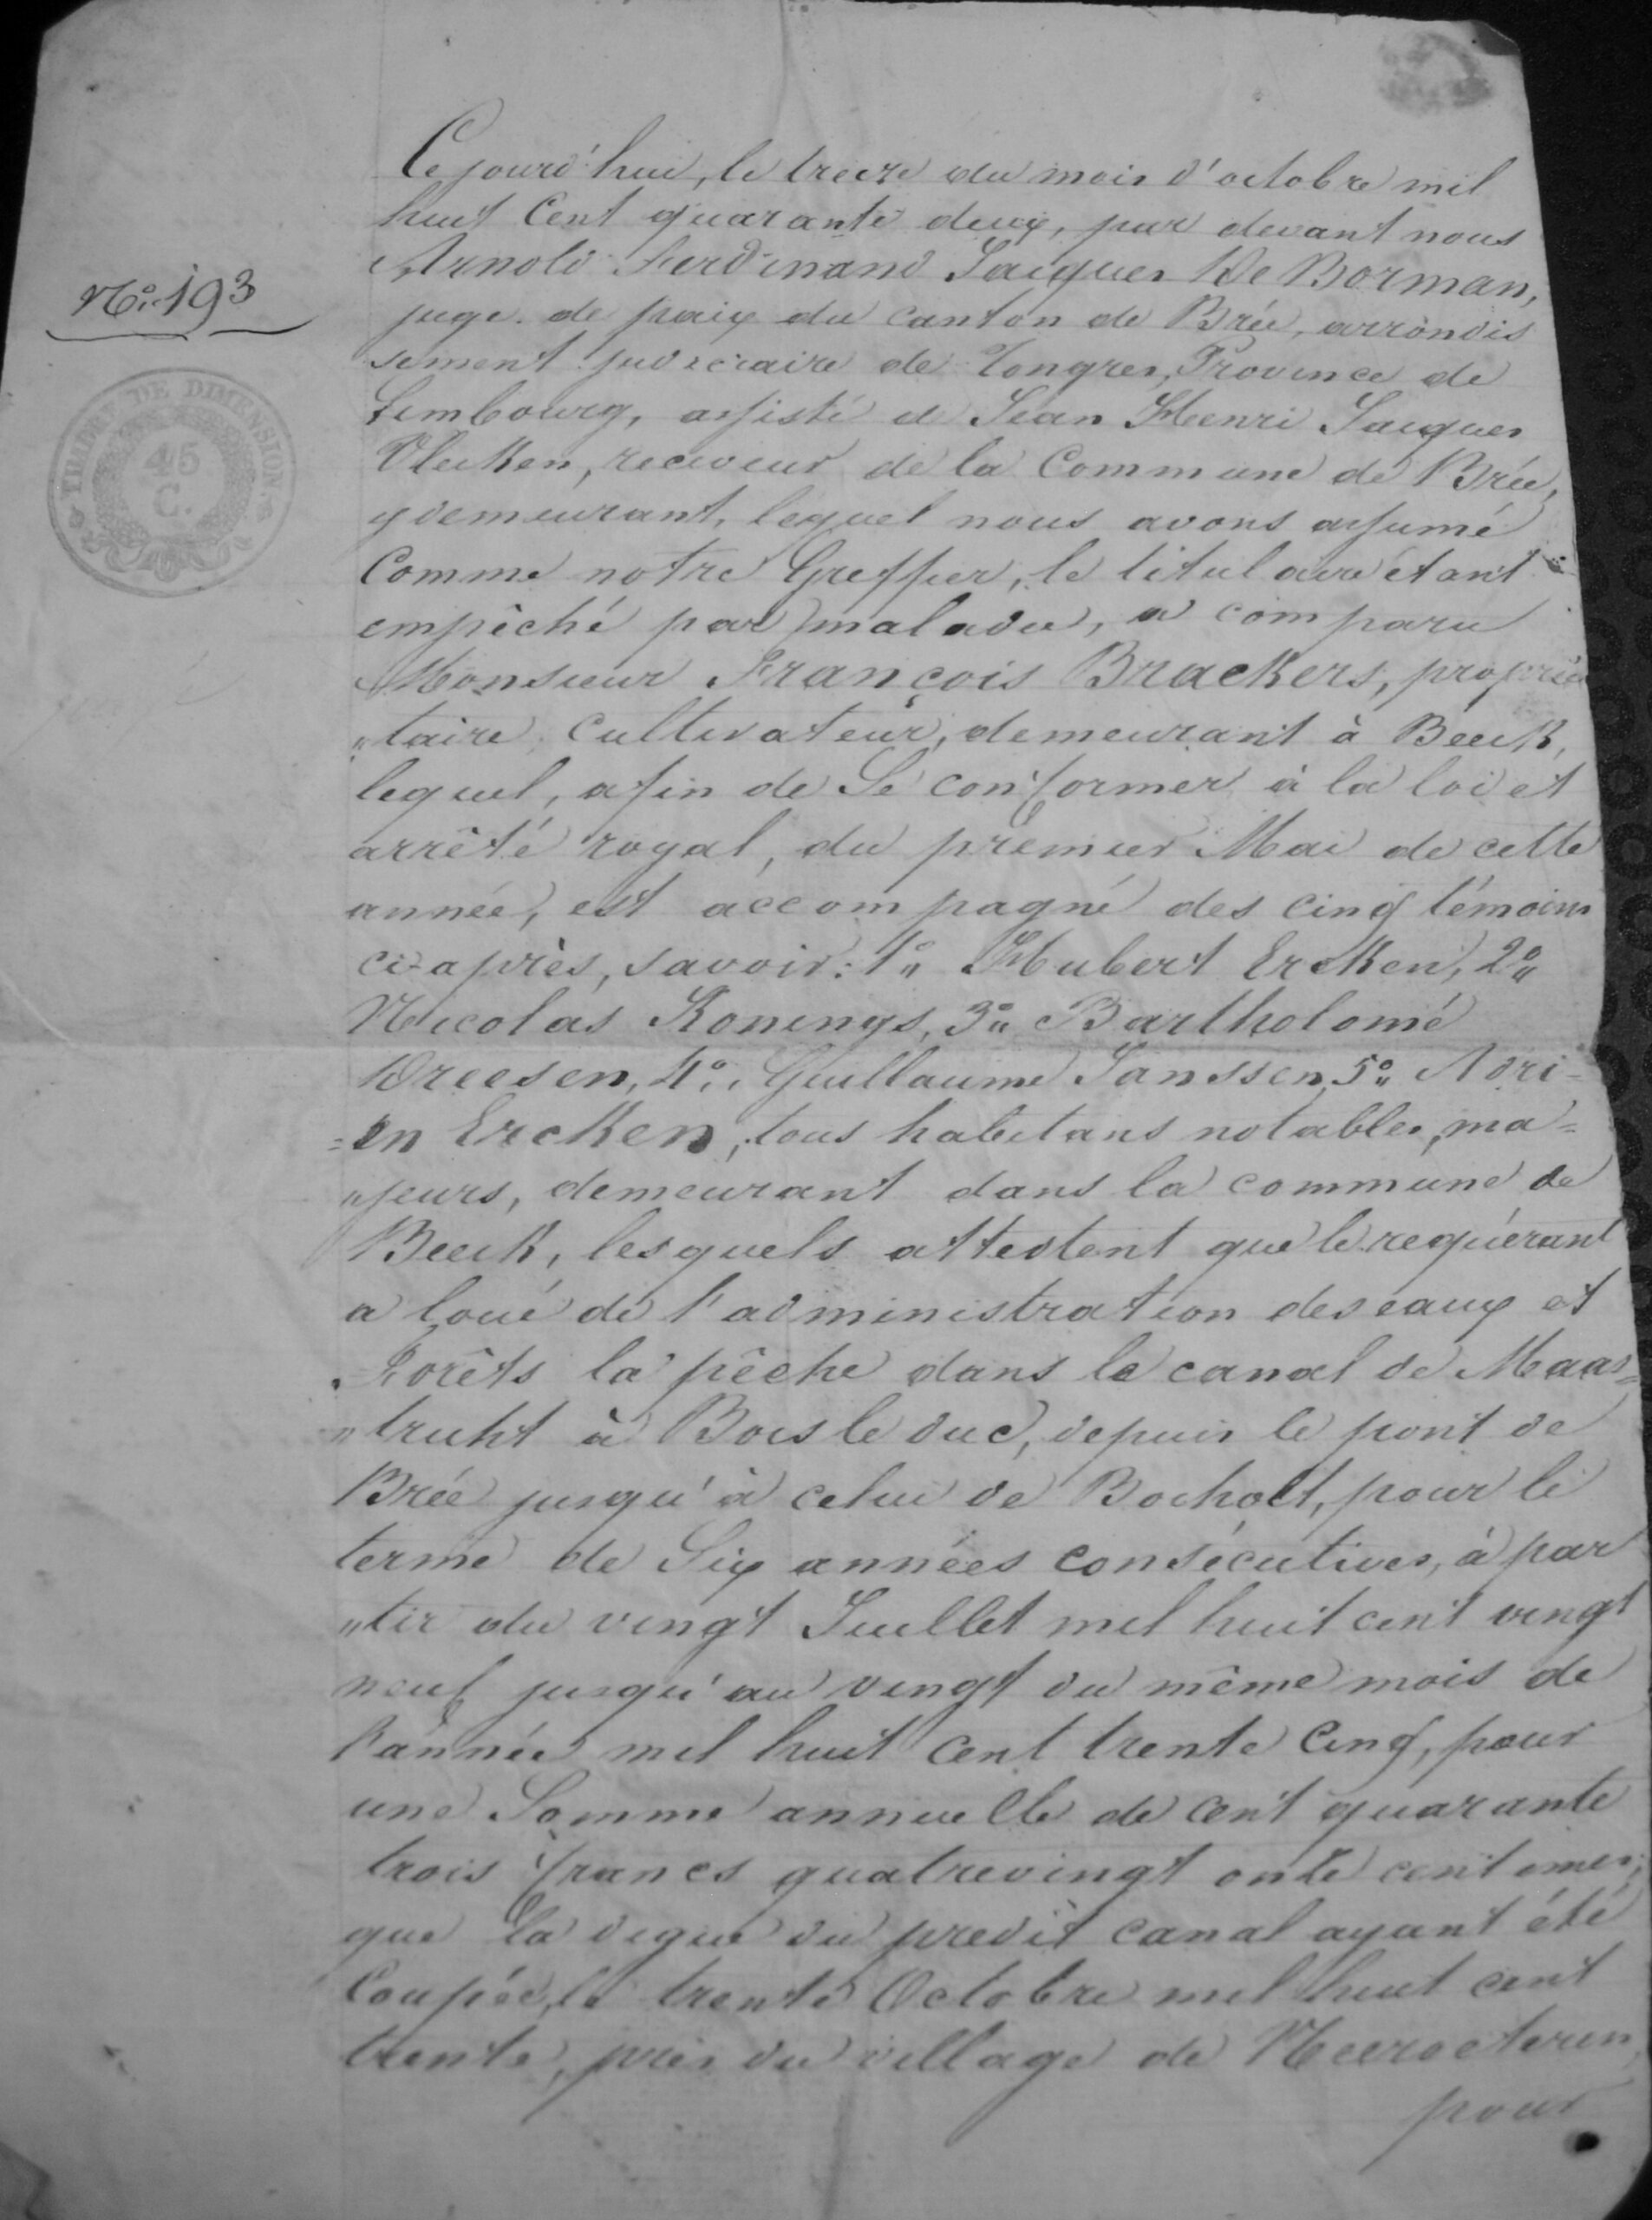 Cejourd'hui, le treize du mois d'octobre mil
huit Cent quarante deux, par devant nous
Arnold Ferdinand Jacques De Borman,
juge de paix du canton de Brée, arrondis
sement judiciaire de Tongres, Province de
Limbourg, assisté de Jean Henri Jacques
Vlecken, receveur de la Commune de Brée,
y demeurant, lequel nous avons assumé
Comme notre Greffier, le titulaire étant
empêché par maladie, a comparu
Monsieur François Brackers, proprié
"taire cultivateur, demeurant à Beek,
lequel, afin de Se conformer à la loi et
arrêté royal, du premier Mai de cette
année, est accompagné des cinq témoins
ci-après, savoir: 1° Hubert Ercken, 2°
Nicolas Konings, 3° Bartholomé
Dreesen, 4° Guillaume Janssen, 5° Adri=
=en Ercken, tous habitans notables, ma=
"jeurs, demeurant dans la commune de
Beek, lesquels attestent que le requérant
a loué de l'administration des eaux et
Forêts la pêche dans le canal de Maas=
"tricht à Bois le duc, depuis le pont de
Brée jusqu'à celui de Bocholt, pour le
terme de Six années consécutives, à par
"tir du vingt Juillet mil huit cent vingt
neuf jusqu'au vingt du même mois de
l'année mil huit Cent trente Cinq, pour
une Somme annuelle de Cent quarante
trois francs quatrevingt onze centimes;
que la digue du predit canal ayant été
Coupée, le trente Octobre mil huit cent
trente, près du village de Neeroeteren,
pour
N° 193
TIMBRE DE DIMENSION
45
C.